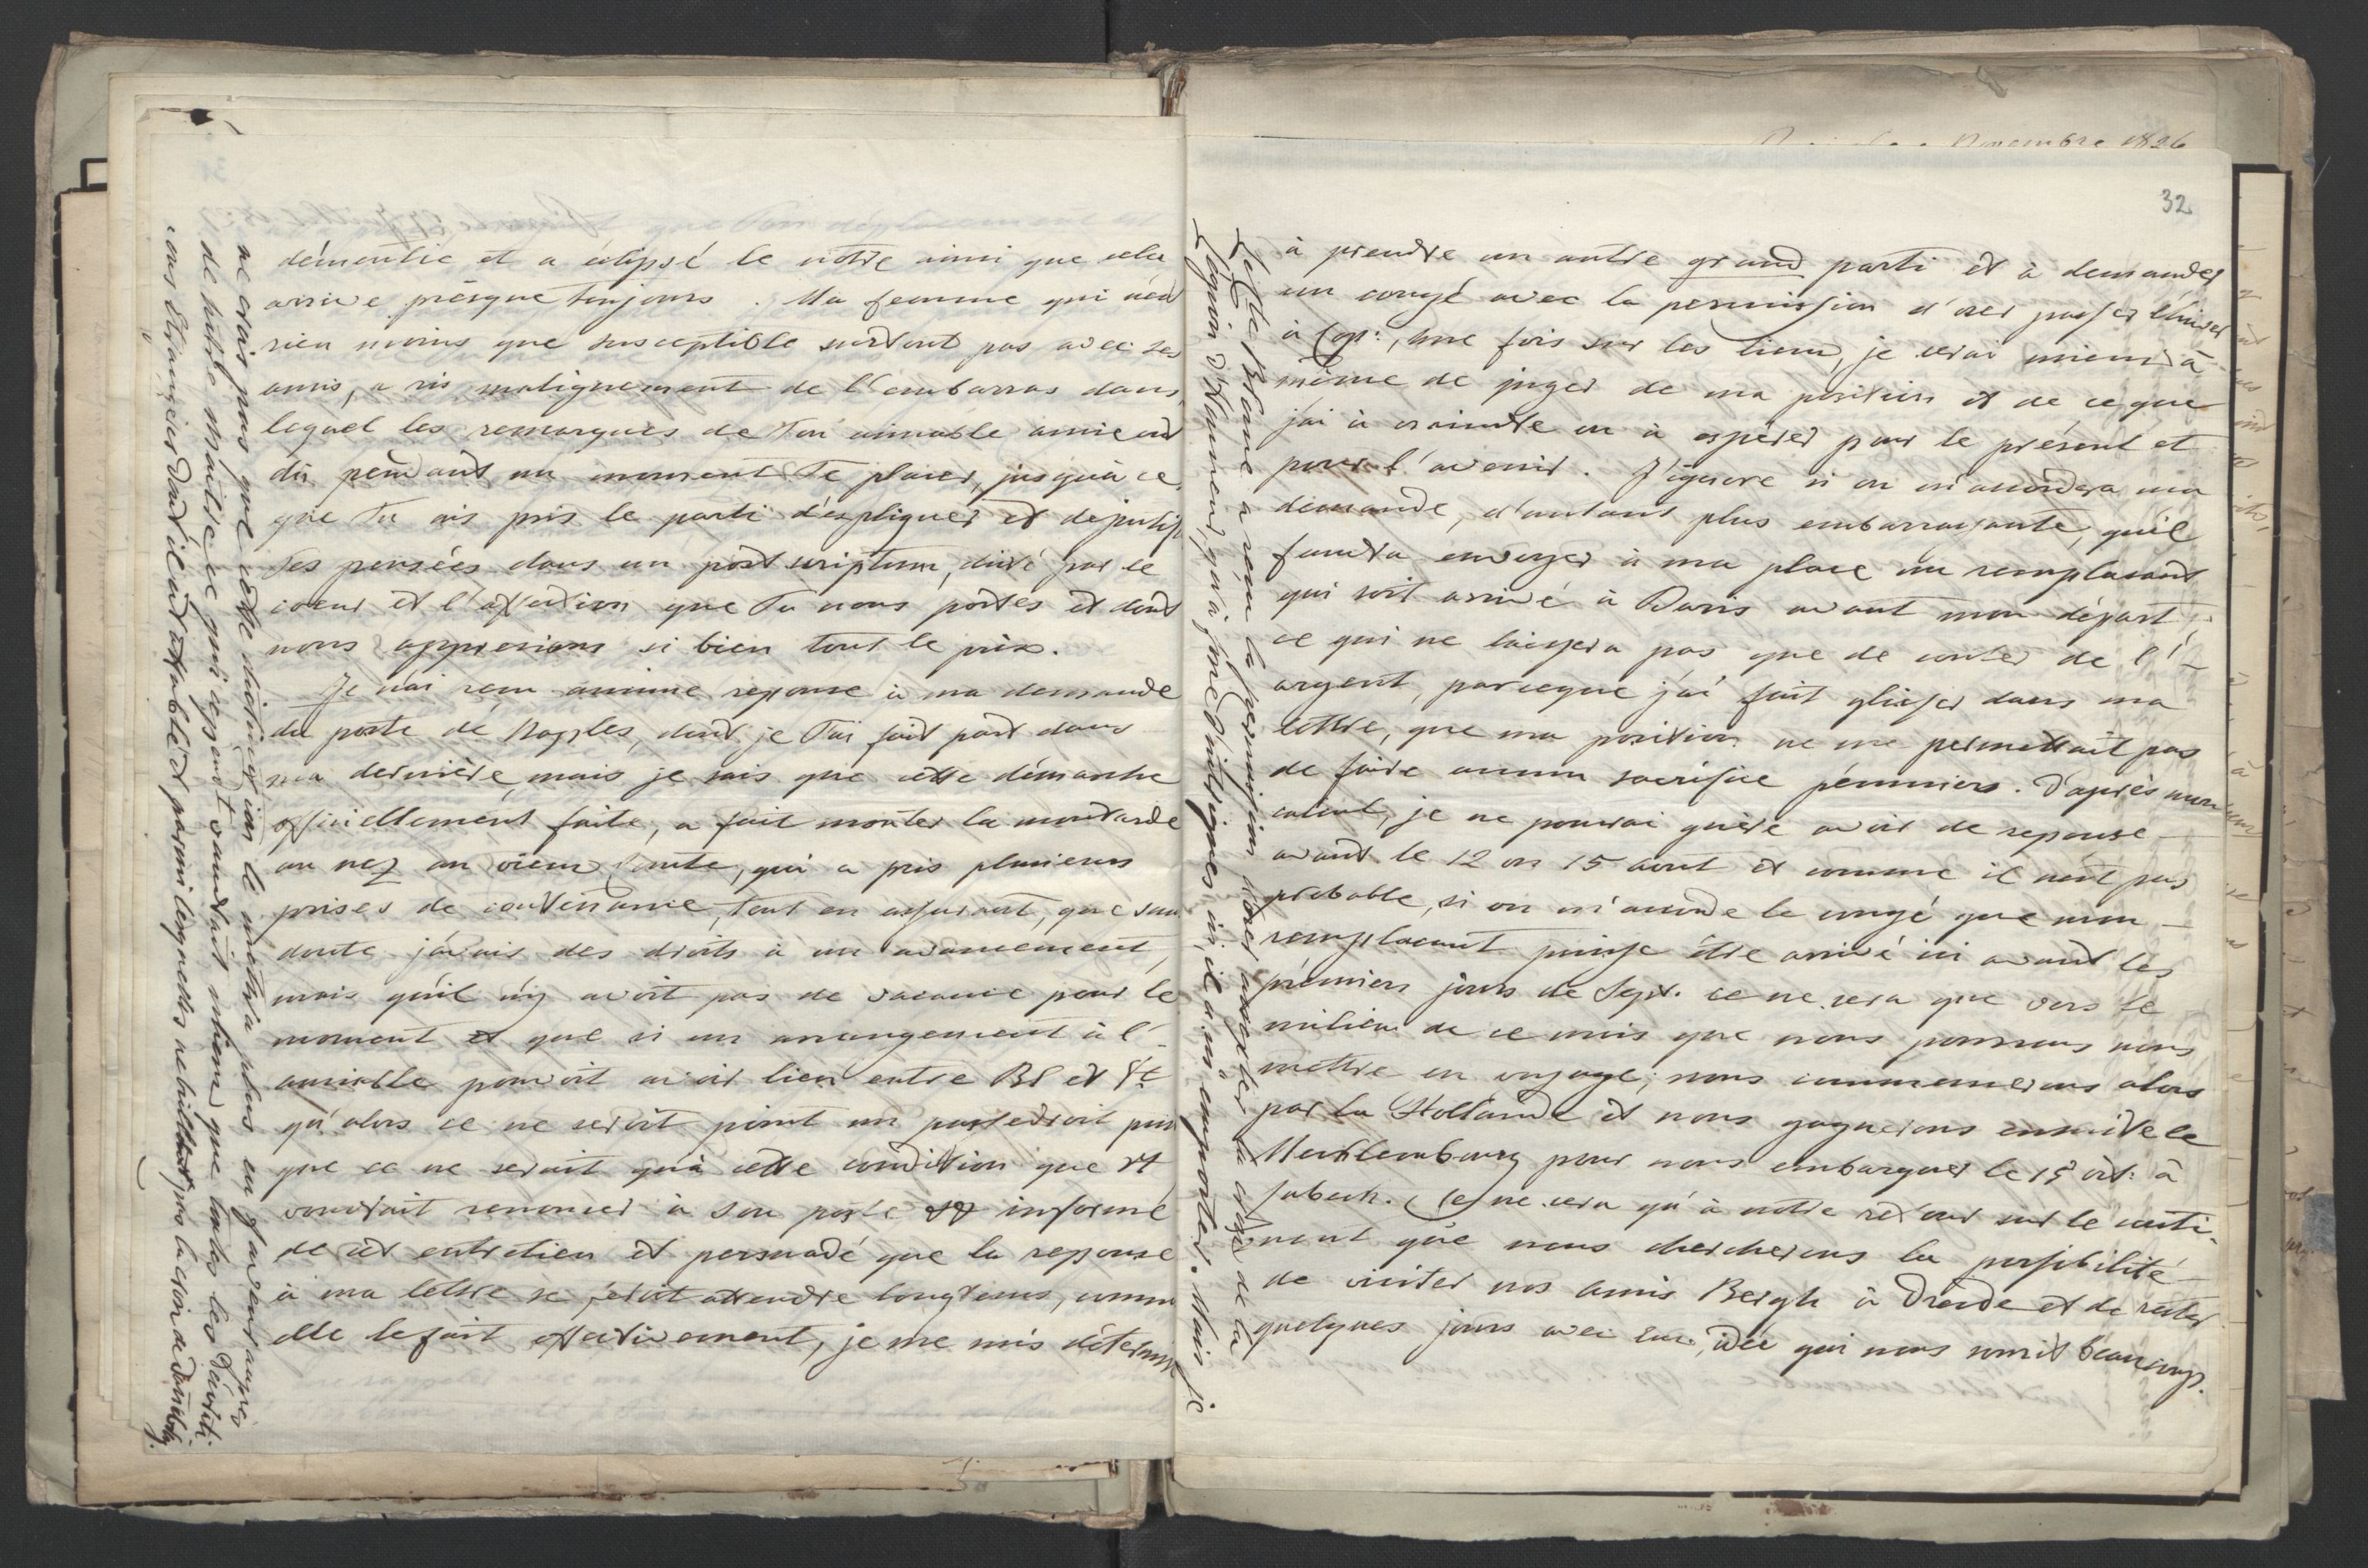 démentie et a éclipsé le nôtre ainsi que cela
arrive présque toujours. Ma femme qui n'est
rien moins que susceptible surtout pas avec ses
amis, a ris malignement de l'embarras dans
lequel les remarques de Ton aimable amie ont
dû pendant un moment Te placer, jusqu'à ce
que Tu ais pris le parti d'expliquer et de justif
Tes pensées dans un post scriptum, dicté par le
coeur et l'affection que Tu nous portes et dont
nous apprecions si bien tout le prix.
Je n'ai reçu aucune reponse à ma demande
du poste de Naples, dont je T'ai fait part dans
ma dernière, mais je sais que cette démarche
officiellement faite, a fait monter la moutarde
au nez au vieux Comte, qui a pris plusieurs
prises de contenance, tout en assurant, que sans
doute j'avais des droits à un avancement,
mais qu'il n'y avoit pas de vacance pour le
moment et que si un arrangement à l'-
amiable pouvoit avoir lieu entre Bl et St
qu'alors ce ne seroit point un passedroit puis
que ce ne serait qu'à cette condition que St
voudrait renoncer à son poste informé
de cet entretien et persuadé que la reponse
à ma lettre se feroit attendre longtems, comme
elle le fait effectivement, je me mis détermin
ne crois pas que cette distinction le mettra plus en faveur auprès
de notre maitre ce qui cependant vaudrait mieux que toutes les
cours Etrangères dont il est accablé et parmi lesquelles ne brillent pas la croix de
32
Novembre 1826
à prendre un autre grand parti et à demander
un congé avec la permission d'oser passer l'hiver
à Cop:, une fois sur les lieux, je serai mieux à
même de juger de ma position et de ce que
j'ai à craindre ou à espérer pour le présent et
pour l'avenir. J'ignore si on m'accordera ma
demande, d'autant plus embarrassante, qu'il
faudra envoyer à ma place un remplacant
qui soit arrivé à Paris avant mon départ,
ce qui ne laissera pas que de couter de l'-
argent, parceque j'ai fait glisser dans ma
lettre, que ma position ne me permettrait pas
de faire aucun sacrifice pécuniers. D'après mon
calcul, je ne pourrai guère avoir de reponse
avant le 12 ou 15 aout et comme il n'est pas
probable, si on m'accorde le congé que mon
remplacant puisse être arrivé ici avant les
prémiers jours de Sept. ce ne sera que vers le
milieu de ce mois que nous pourrons nous
mettre en voyage; nous commencerons alors
par la Hollande et nous gagnerons ensuite le
Mecklembourg pour nous embarquer le 15 Oct: à
Lubeck. Ce ne sera qu'à notre retour sur le conti-
nent que nous chercherons la possibilité
de visiter nos amis Bergh à Dresde et de rester
quelques jours avec eux, idée qui nous sourit beaucoup.
Blome a reçu la permission d'oser accepter la croix de la
Légion d'Honneur, qu'à force d'intrigues ici, il a sû emporter. Mais je